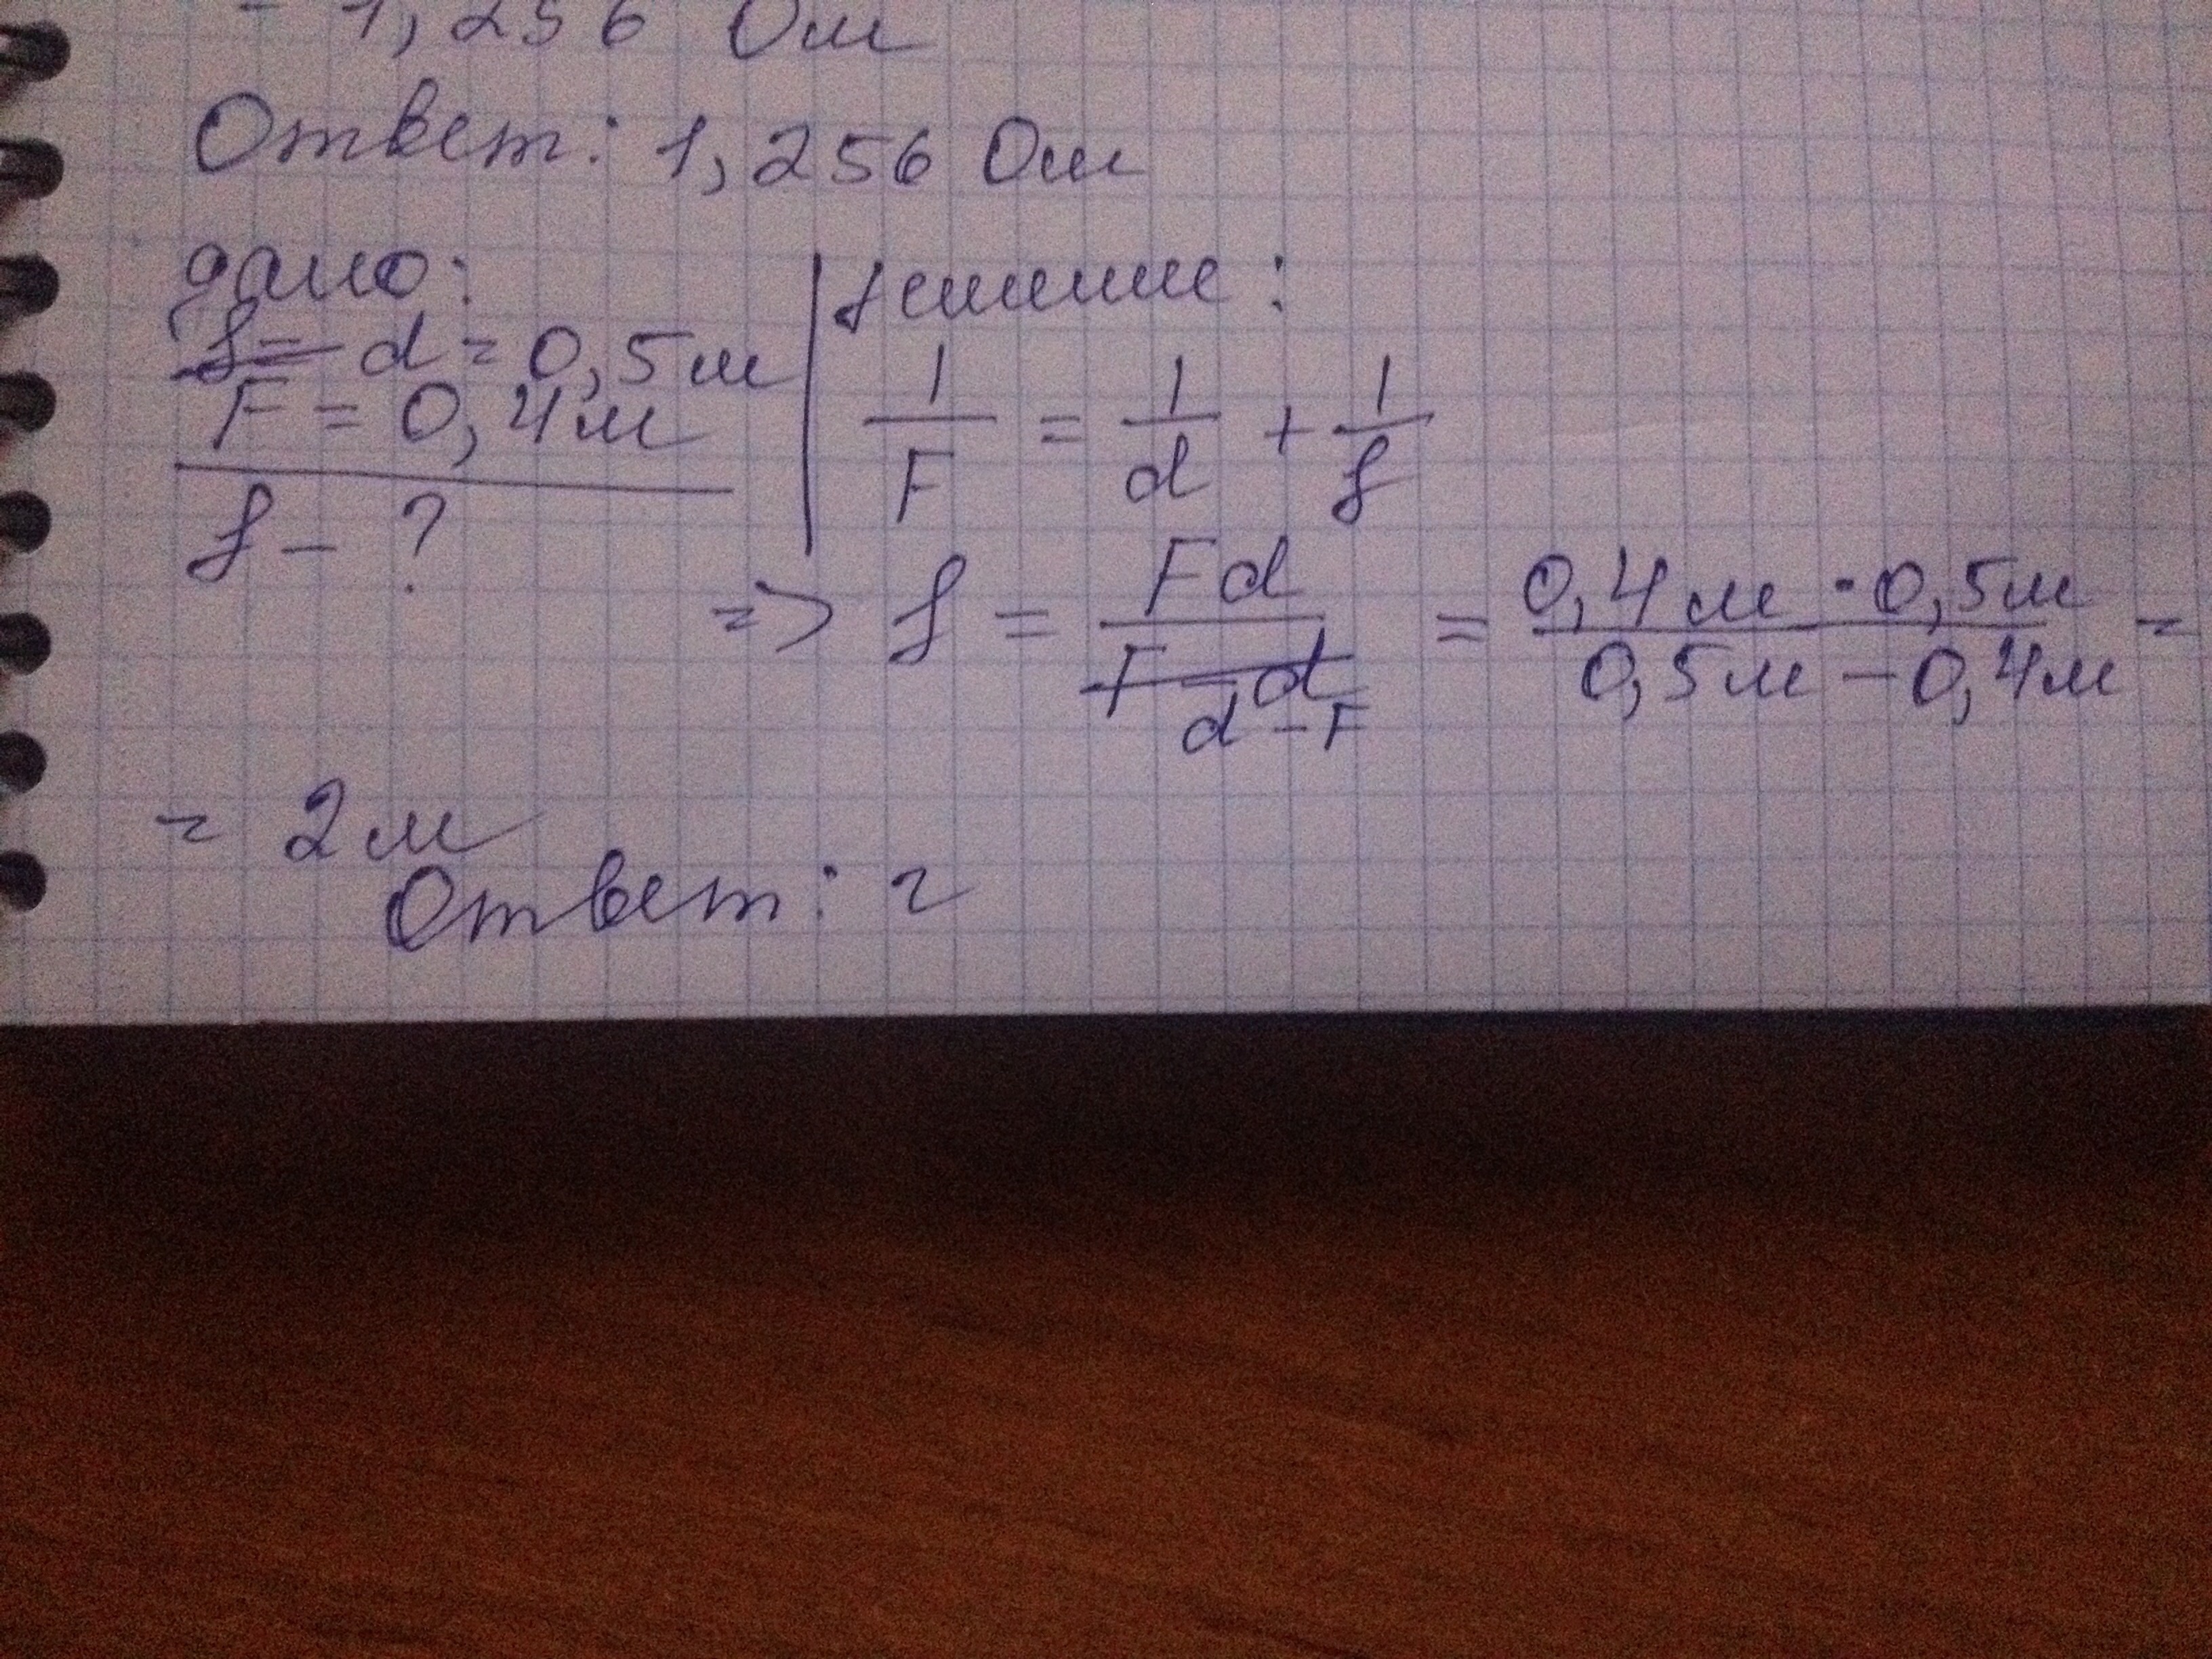 = 1,256 Ом
Ответ: 1,256 Ом
дано:
f = d = 0,5м
F = 0,4м
f - ?
решение:
1/F = 1/d + 1/f
=> f = Fd / F - d d - F = 0,4м · 0,5м / 0,5м - 0,4м =
= 2м
Ответ: 2